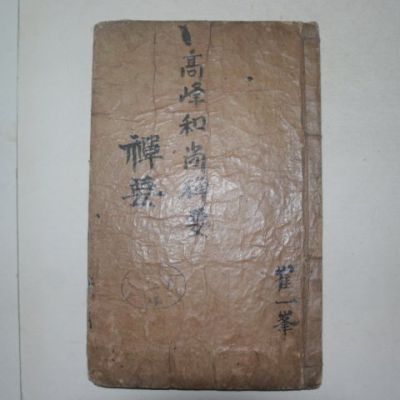 高峰和尚禪要
禪要
崔一峯